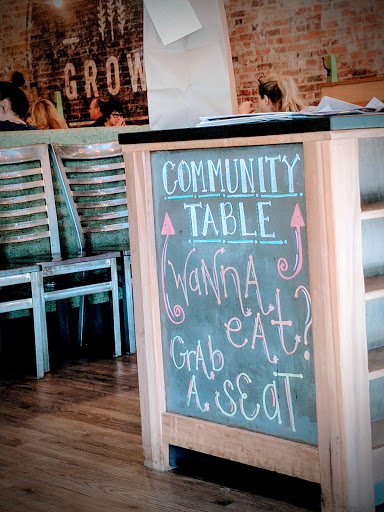 GROW
COMMUNITY
TABLE
Wanna
eat?
Grab
A Seat